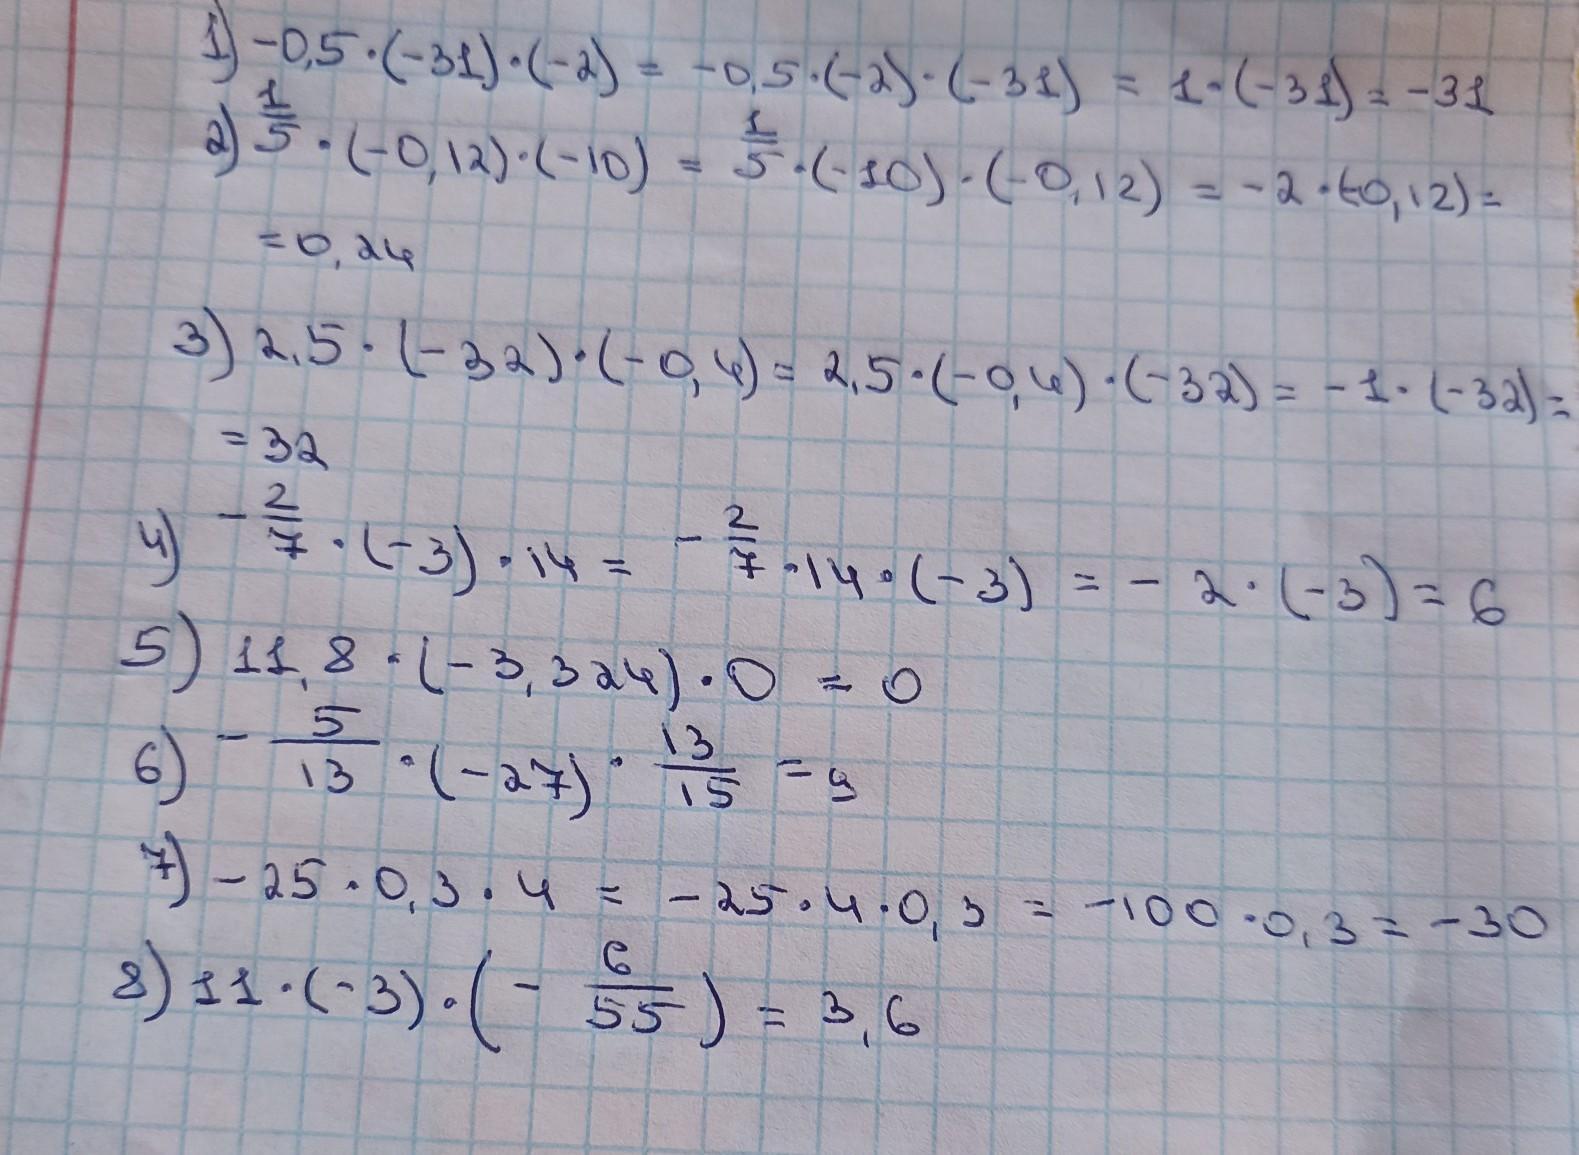 1) -0,5·(-31)·(-2) = -0,5·(-2)·(-31) = 1·(-31) = -31
2) 1/5·(-0,12)·(-10) = 1/5·(-10)·(-0,12) = -2·(-0,12) =
= 0,24
3) 2,5·(-32)·(-0,4) = 2,5·(-0,4)·(-32) = -1·(-32) =
= 32
4) -2/7·(-3)·14 = -2/7·14·(-3) = -2·(-3) = 6
5) 11,8·(-3,324)·0 = 0
6) -5/13·(-27)·13/15 = 9
7) -25·0,3·4 = -25·4·0,3 = -100·0,3 = -30
8) 11·(-3)·(-6/55) = 3,6